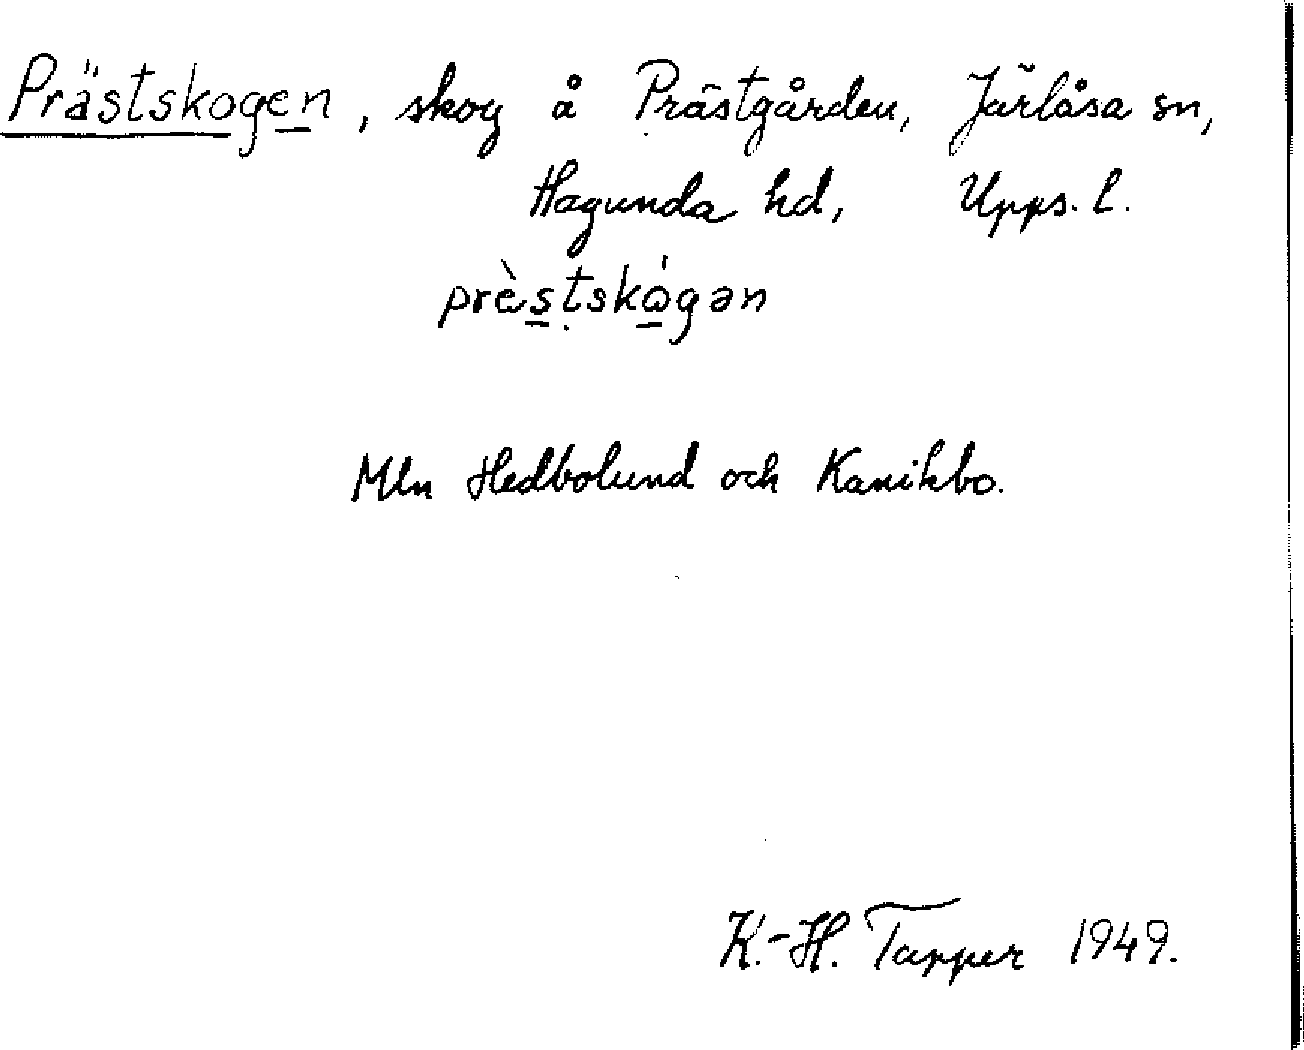 Prästskogen, skog å Prästgården, Järlåsa sn,
Hagunda hd, Upps. l.
prèstskógən
Mln Hedbolund och Kanikbo.
K.-H. Tapper 1949.